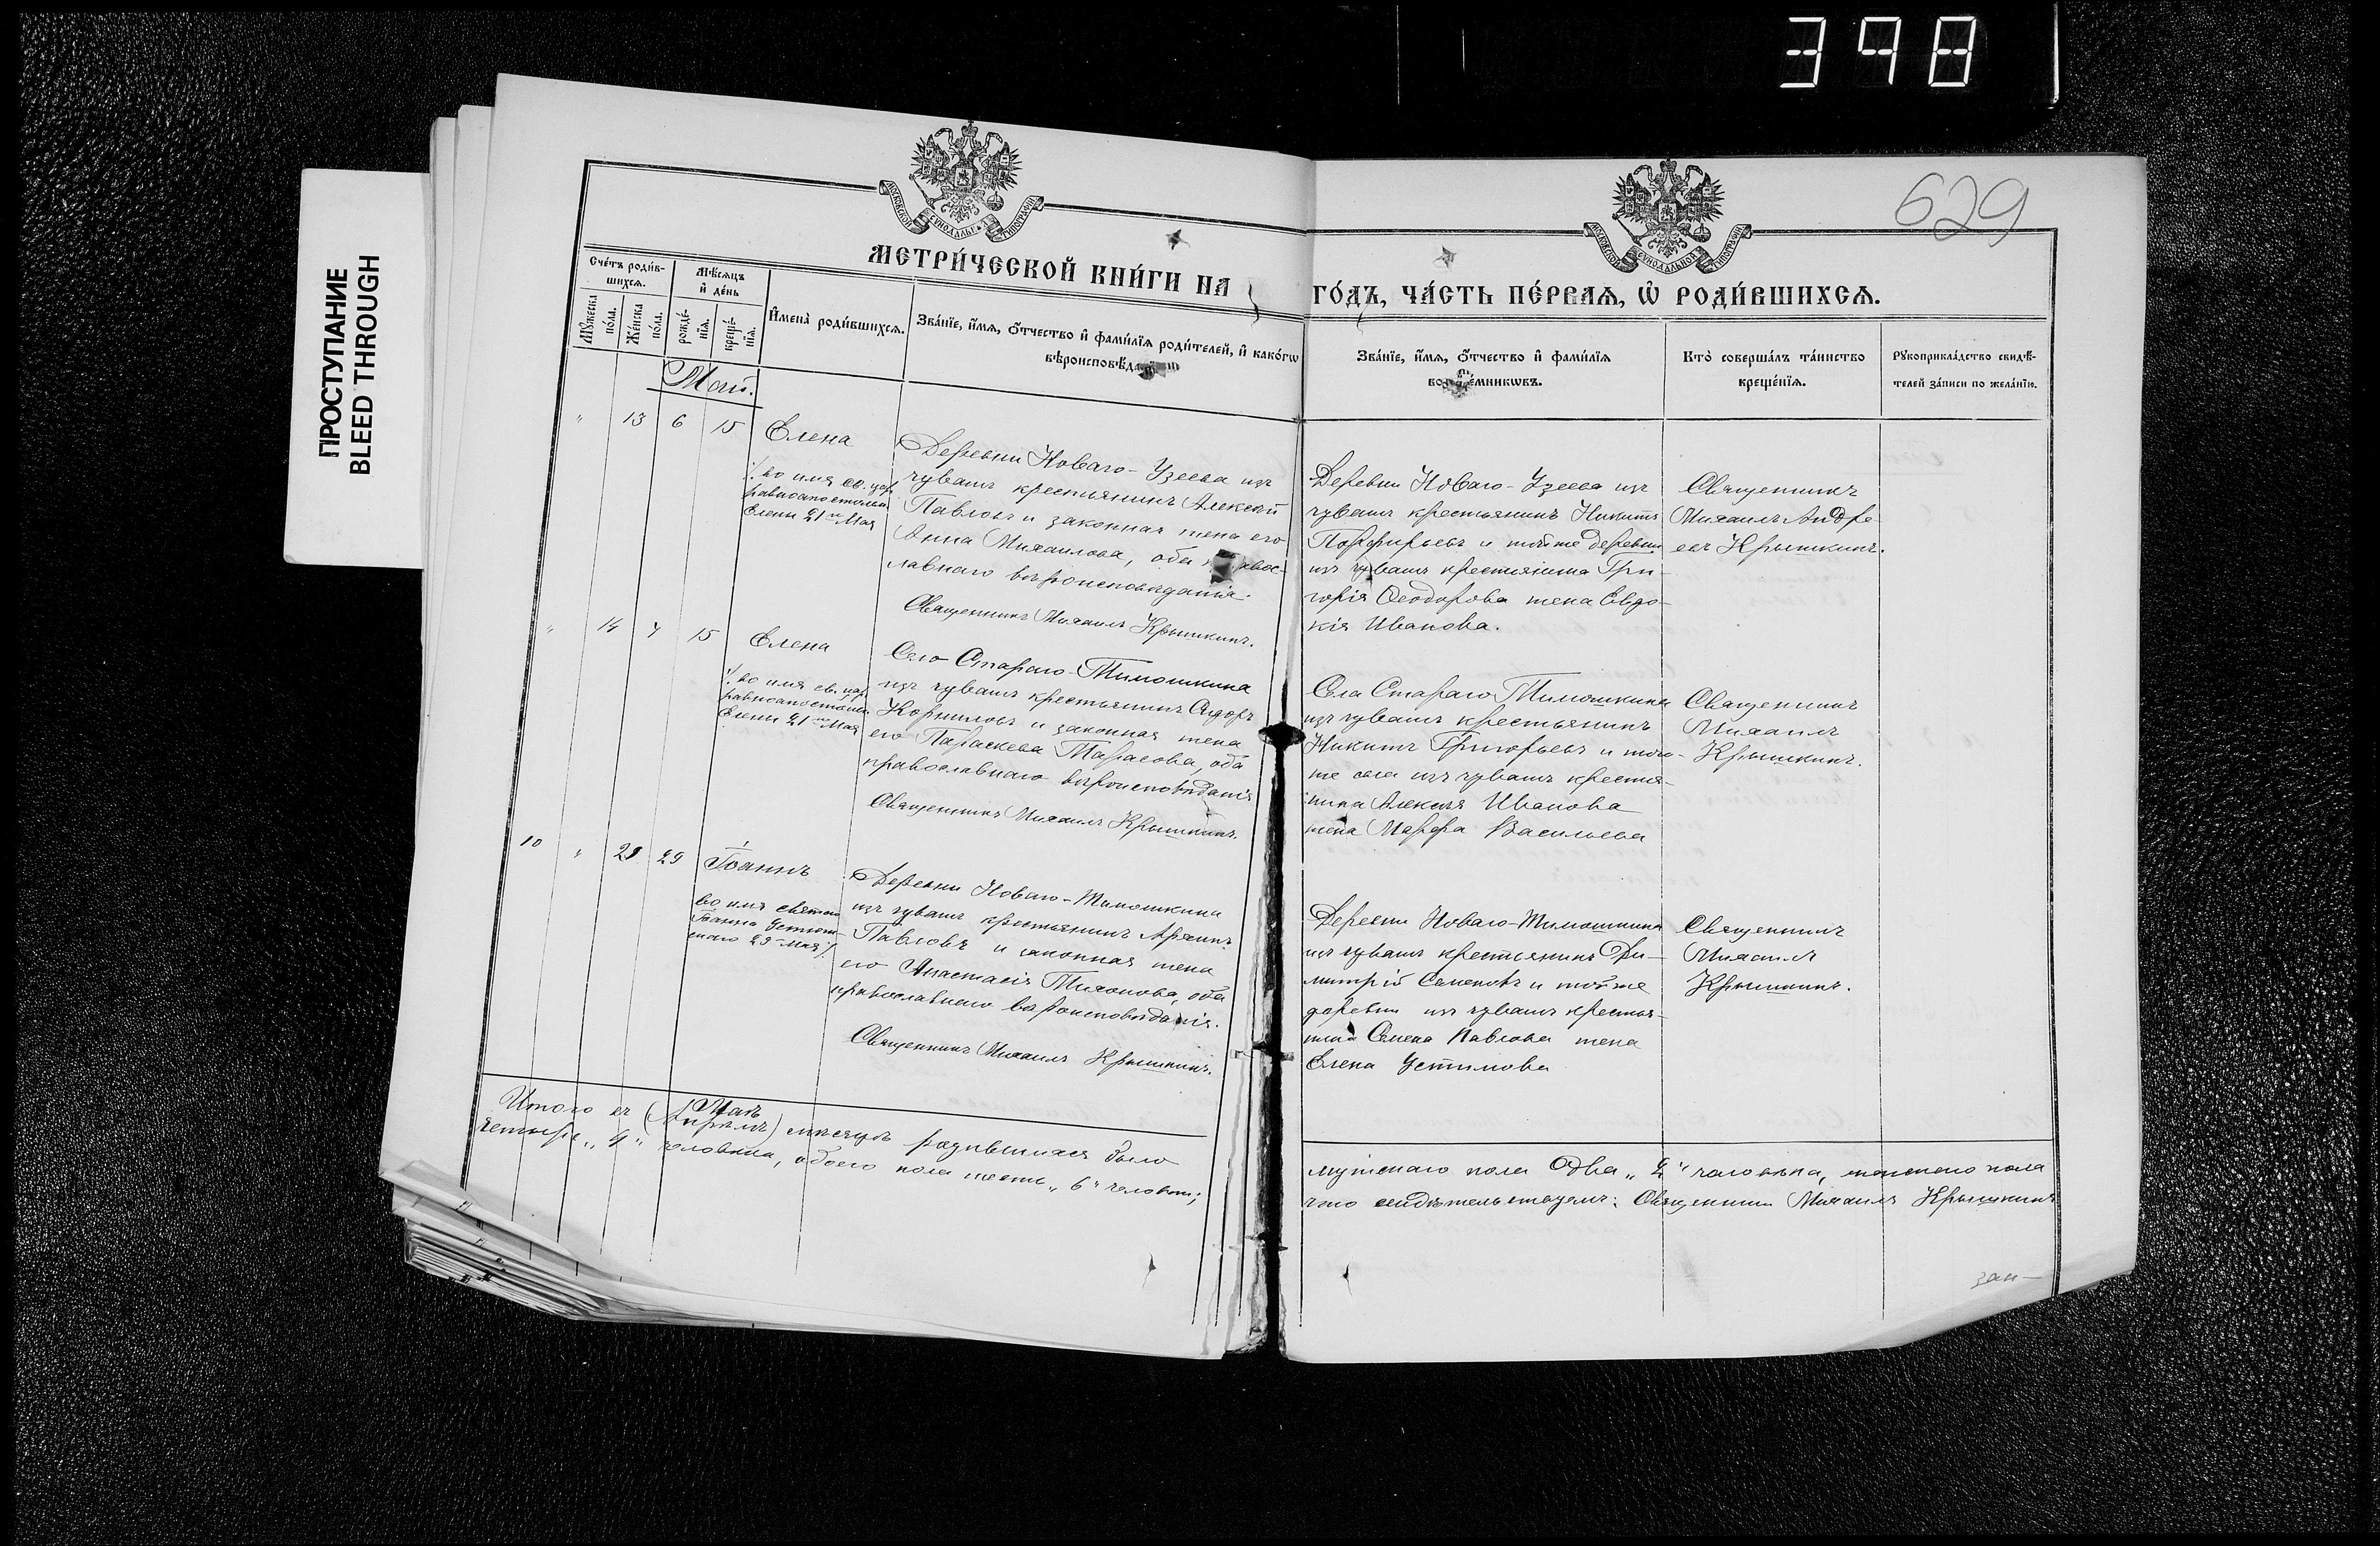 398
629
ПРОСТУПАНИЕ
BLEED THROUGH
МЕТРИ́ЧЕСКОЙ КНИ́ГИ НА
ГО́ДЪ, ЧА́СТЬ ПЕ́РВАѦ, Ѽ РОДИ́ВШИХСѦ.
Сче́тъ роди́в-
шихсѧ.
Мѣ́сѧцъ
и҆ де́нь
Мꙋ́жеска
по́ла.
Же́нска
по́ла.
рожде́-
нїѧ.
креще́-
нїѧ.
И҆мена̀ роди́вшихсѧ.
Зва́нїе, и҆́мѧ, ѻ҆́тчество и҆ фами́лїѧ роди́телей, и҆ како́гѡ
вѣроисповѣ́да
Зва́нїе, и҆́мѧ, ѻ҆́тчество и҆ фами́лїѧ
во емникѡвъ.
Кто̀ соверша́лъ та́инство
креще́нїѧ.
Рꙋкоприкла́дство свидѣ́-
телей за́писи по жела́нїю.
Май.
" 13 6 15 Елена
/во имя св. цар.
равноапостольн.
Елены 21го Мая
Деревни Новаго-Узеева изъ
чувашъ крестьянинъ Алексѣй
Павловъ и законная жена его
Анна Михаилова, оба
лавнаго вѣроисповѣданія.
Священникъ Михаилъ Крышкинъ.
Деревни Новаго-Узеева изъ
чувашъ крестьянинъ Никита
Порфирьевъ и тойже деревни
изъ чувашъ крестьянина Гри-
горія Ѳеодорова жена Евдо-
кія Иванова.
Священникъ
Михаилъ Андре-
евъ Крышкинъ.
" 14 15 Елена
/во имя св. цар.
равноапостольн.
Елены 21го Мая
Село Стараго Тимошкина
изъ чувашъ крестьянинъ Сидоръ
Корниловъ и законная жена
его Параскева Тарасова, оба
православнаго вѣроисповѣданія
Священникъ Михаилъ Крышкинъ.
Села Стараго Тимошкина
изъ чувашъ крестьянинъ
Никита Григорьевъ и того-
же села изъ чувашъ крестья-
нина Алексѣя Иванова
жена Марфа Васильева
Священникъ
Михаилъ
Крышкинъ.
10 " 29 Іоаннъ
во имя святаго
Іоанна Устюж-
скаго 29 Мая/.
Деревни Новаго-Тимошкина
изъ чувашъ крестьянинъ
Павловъ и законная жена
его Анастасія Тихонова, оба
православнаго вѣроисповѣданія.
Священникъ Михаилъ Крышкинъ.
Деревни Новаго-Тимошкина
изъ чувашъ крестьянинъ Ди-
митрій Семеновъ и тойже
деревни изъ чувашъ крестья-
нина Семена Павлова жена
Елена Устимова
Священникъ
Михаилъ
Крышкинъ.
Маѣ
Итого въ (Апрѣлѣ) мѣсяцѣ родившихся было
мужскаго пола два „2" человѣка, женскаго пола
четыре „4" человѣка, обоего пола шесть „6" человѣкъ;
что свидѣтельствуемъ: Священникъ Михаилъ Крышкинъ